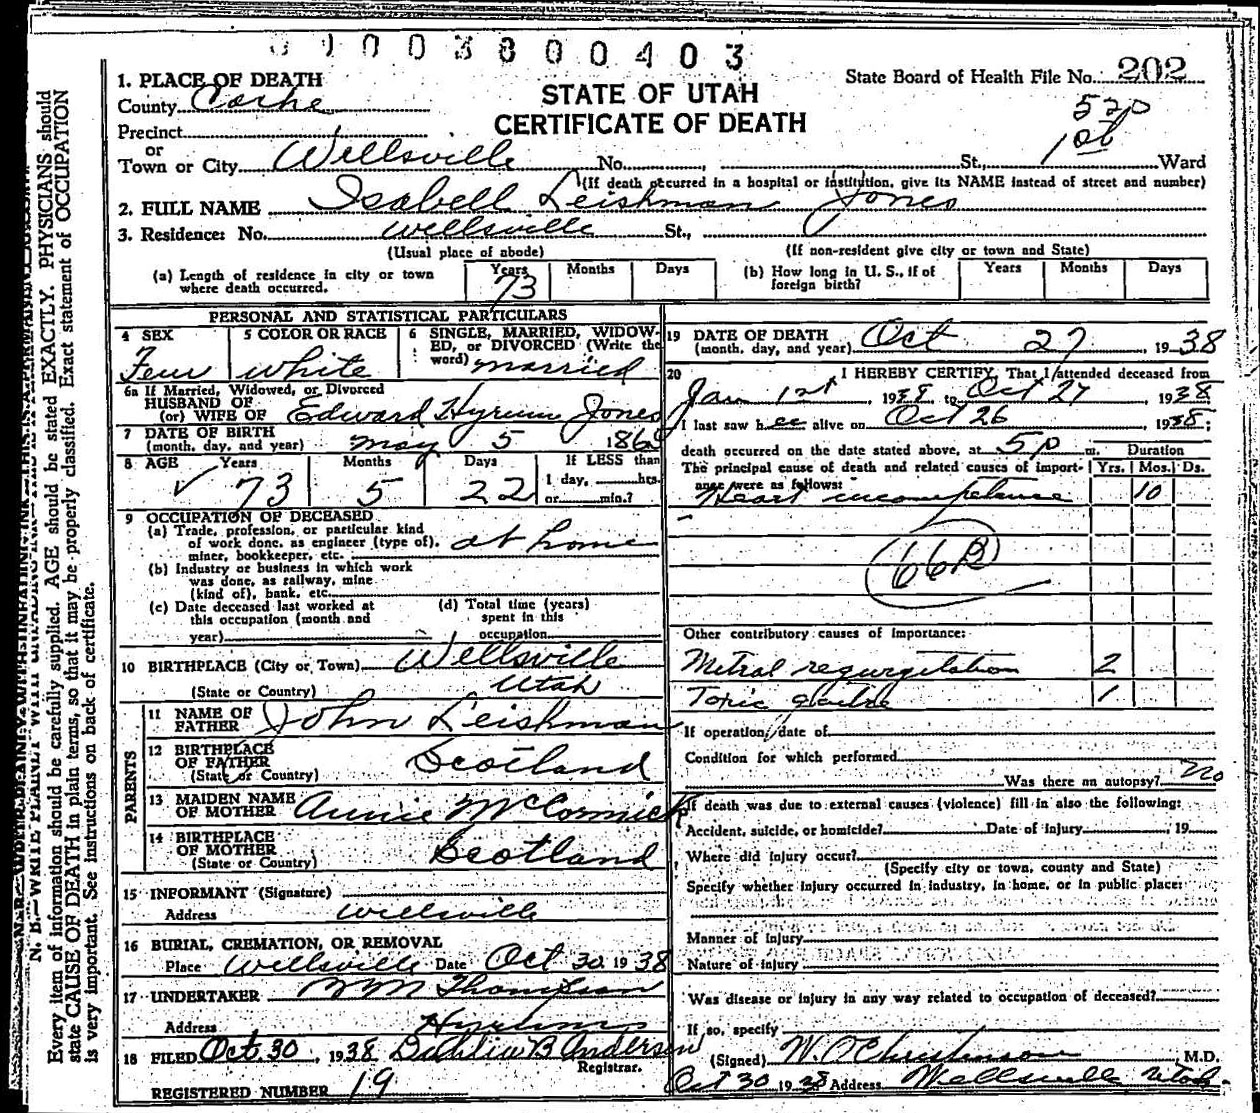 0100380 0403
State Board of Health File No. 202
STATE OF UTAH
CERTIFICATE OF DEATH
520
1. PLACE OF DEATH
County Cache
Precinct
or
Town or City Wellsville No. , St., Ward
(If death occurred in a hospital or institution, give its NAME instead of street and number)
2. FULL NAME Isabell Leishman Jones
3. Residence: No. Wellsville St.,
(Usual place of abode) (If non-resident give city or town and State)
(a) Length of residence in city or town where death occurred. Years 73 Months Days
(b) How long in U. S., if of foreign birth? Years Months Days
PERSONAL AND STATISTICAL PARTICULARS
4 SEX Fem
5 COLOR OR RACE White
6 SINGLE, MARRIED, WIDOWED, or DIVORCED (Write the word) married
6a If Married, Widowed, or Divorced
HUSBAND OF
(or) WIFE OF Edward Hyrum Jones
7 DATE OF BIRTH
(month, day, and year) May 5 186
8 AGE Years 73 Months 5 Days 22 If LESS than
1 day, hrs.
or min.?
9 OCCUPATION OF DECEASED
(a) Trade, profession, or particular kind
of work done, as engineer (type of), at home
miner, bookkeeper, etc.
(b) Industry or business in which work
was done, as railway, mine
(kind of), bank, etc.
(c) Date deceased last worked at
this occupation (month and
year)
(d) Total time (years)
spent in this
occupation
10 BIRTHPLACE (City or Town) Wellsville
(State or Country) Utah
PARENTS
11 NAME OF
FATHER John Leishman
12 BIRTHPLACE
OF FATHER Scotland
(State or Country)
13 MAIDEN NAME
OF MOTHER Annie McCormick
14 BIRTHPLACE
OF MOTHER Scotland
(State or Country)
15 INFORMANT (Signature)
Address Wellsville
16 BURIAL, CREMATION, OR REMOVAL
Place Wellsville Date Oct 30 1938
17 UNDERTAKER Thompson
Address Hyrum
18 FILED Oct. 30, 1938 Dahlia B Andersen
Registrar.
REGISTERED NUMBER 19
19 DATE OF DEATH
(month, day, and year) Oct 27, 1938
20 I HEREBY CERTIFY, That I attended deceased from
Jan 1st, 1938 to Oct 27, 1938.
I last saw h er alive on Oct 26 1938;
death occurred on the date stated above, at 5 p m.
The principal cause of death and related causes of importance were as follows:
Duration
Yrs. Mos. Ds.
Heart incompetence 10
66B
Other contributory causes of importance:
Mitral regurgitation 2
Toxic goitre 1
If operation, date of
Condition for which performed
Was there an autopsy? No
If death was due to external causes (violence) fill in also the following:
Accident, suicide, or homicide? Date of injury , 19
Where did injury occur?
(Specify city or town, county and State)
Specify whether injury occurred in industry, in home, or in public place:
Manner of injury
Nature of injury
Was disease or injury in any way related to occupation of deceased?
If so, specify
(Signed) W. O. Christenson, M.D.
Oct 30 1938 Address Wellsville Utah.
Every item of information should be carefully supplied. AGE should be stated EXACTLY. PHYSICIANS should
state CAUSE OF DEATH in plain terms, so that it may be properly classified. Exact statement of OCCUPATION
is very important. See instructions on back of certificate.